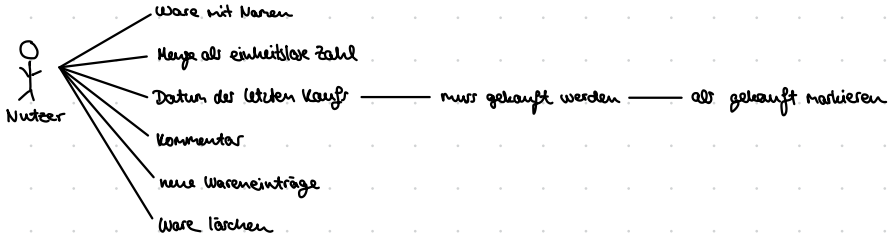 Ware mit Namen
Menge als einheitslose Zahl
Datum des letzten Kaufs
muss gekauft werden
als gekauft markieren
Nutzer
Kommentar
neue Wareneinträge
Ware löschen